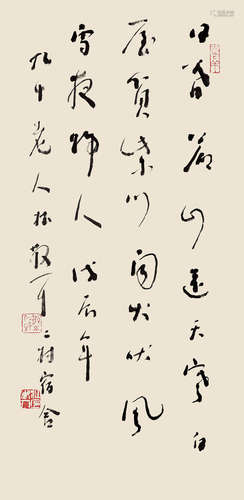 日暮蒼山遠天寒白
屋貧柴門聞犬吠風
雪夜歸人戊辰年
九十老人林散耳二村宿舍